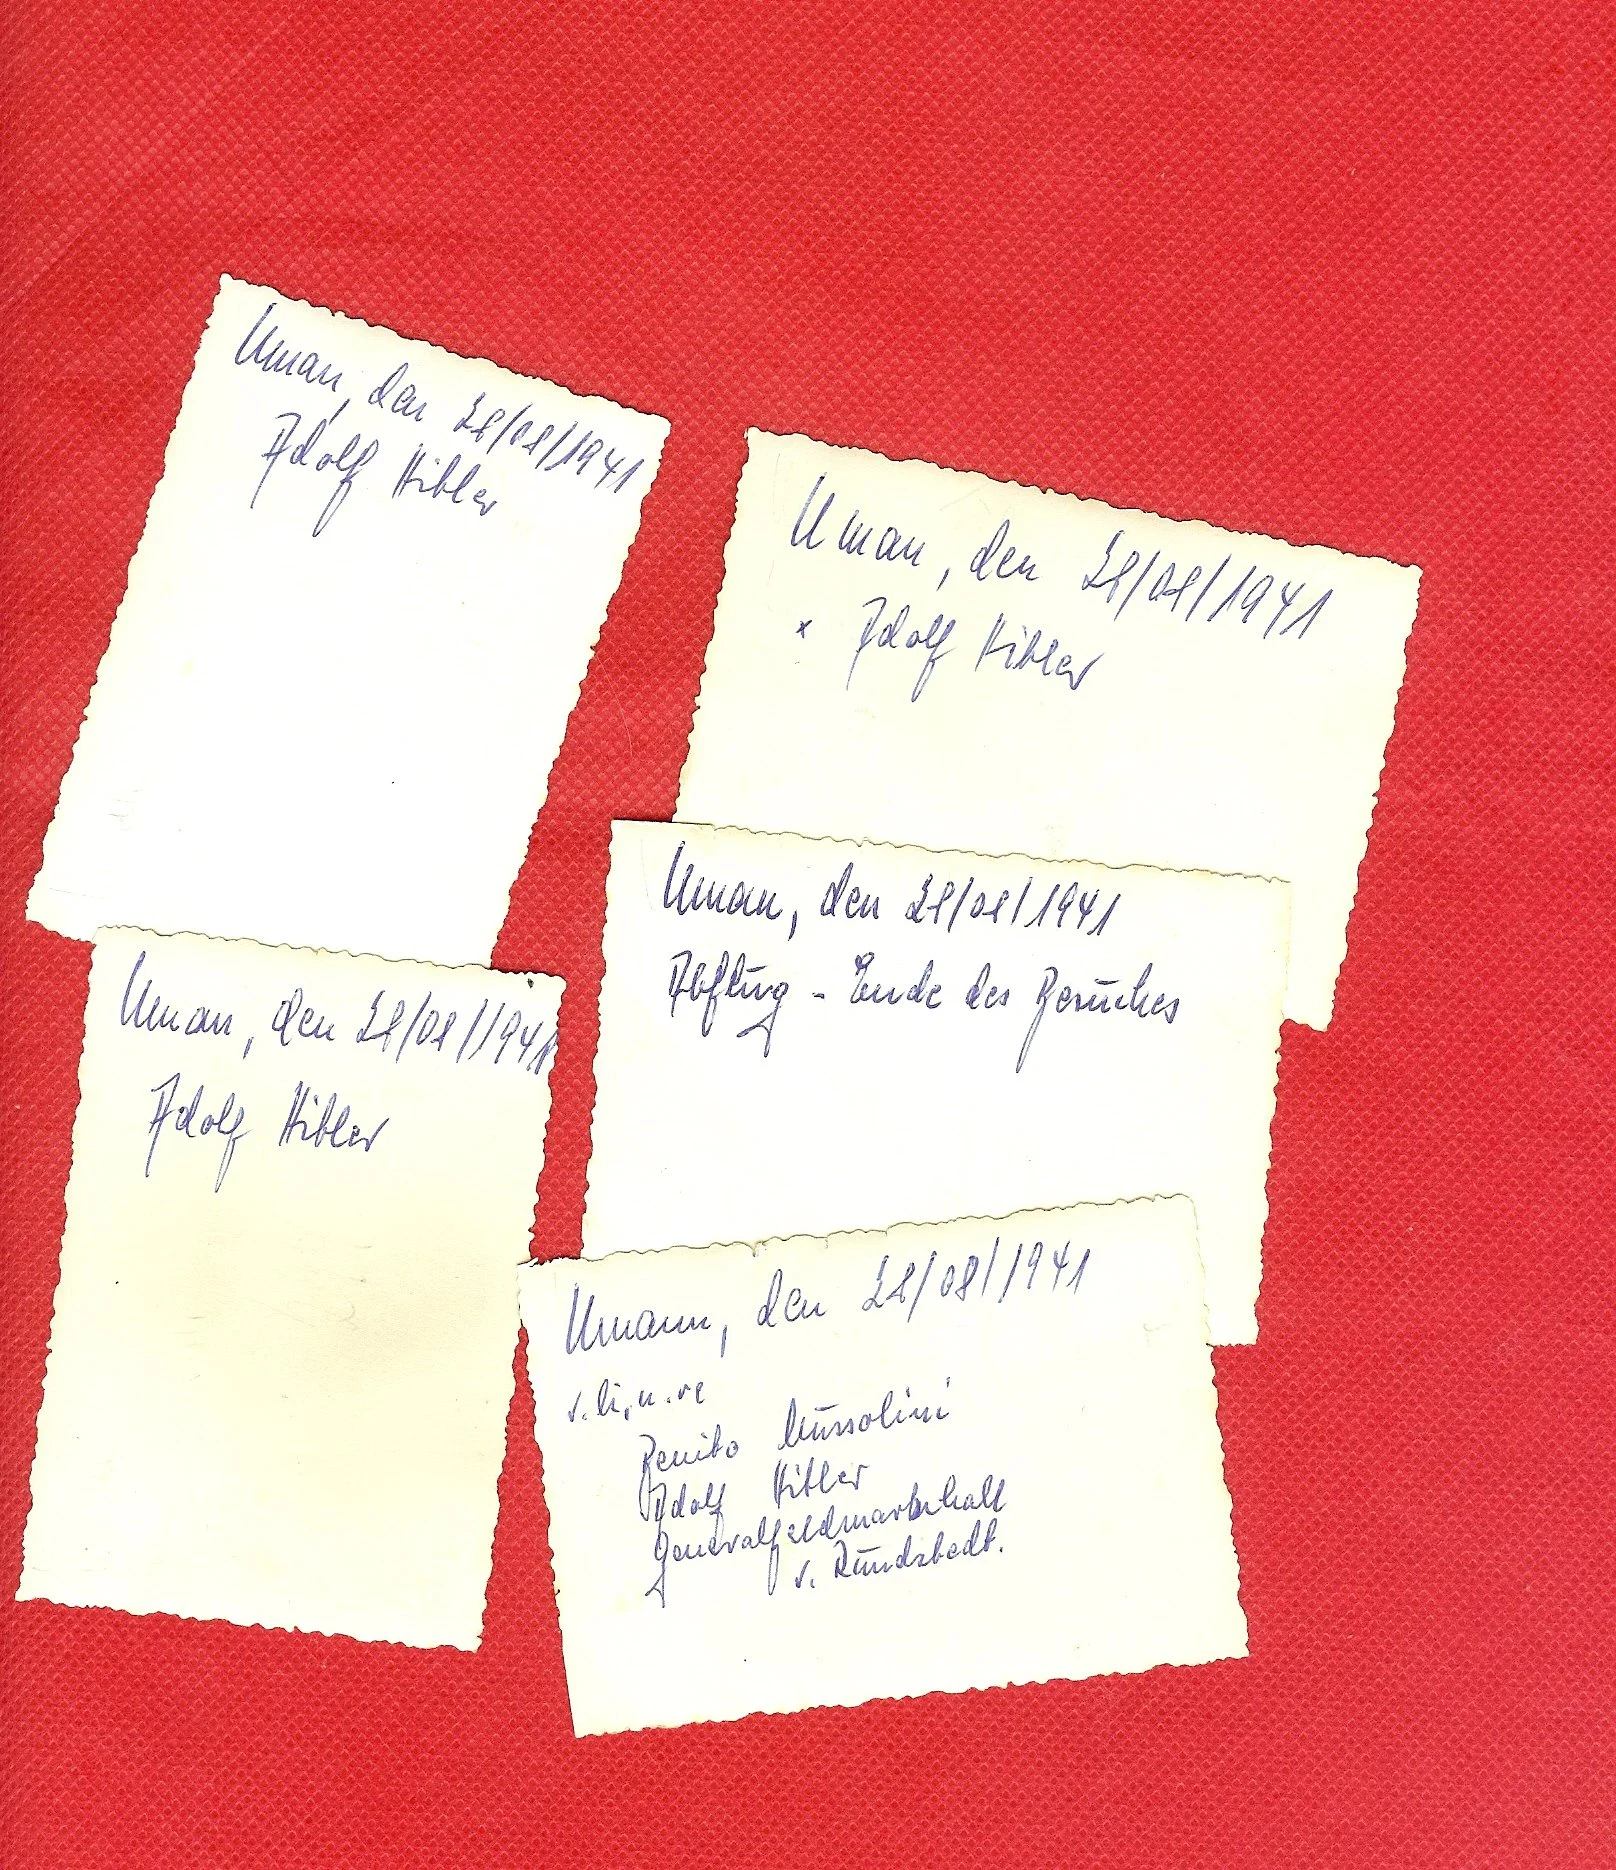 Uman, den 28/08/1941
Adolf Hitler
Uman, den 28/08/1941
x Adolf Hitler
Uman, den 28/08/1941
Abflug - Ende des Besuches
Uman, den 28/08/1941
Adolf Hitler
Umann, den 28/08/1941
v. li, n. re
Benito Mussolini
Adolf Hitler
Generalfeldmarschall
v. Rundstedt.